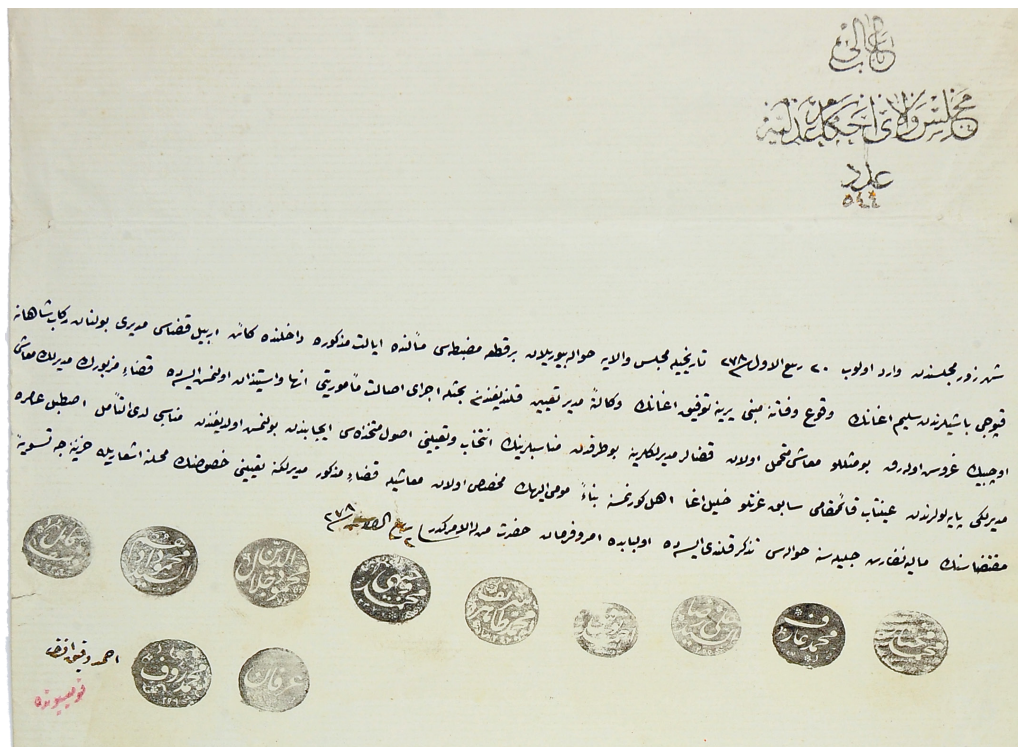 باب عالی
مجلس والای احكام عدلیه
عدد
٥٤٤
شهرزور مجلسندن وارد اولوب ٢٠ ربیع الاول ٢٧٨ تاریخیله مجلس والایه حواله بیوریلان بر قطعه مضبطه‌سی مآلنده ایالت مذكوره داخلنده كائن اربیل قضاسی مدیری بولنان ركاب شاهانه
قپوجی باشیلرندن سلیم اغانك وقوع وفاتنه مبنی یرینه توفیق اغانك وكالةً مدیر تعیین قلندیغندن بحثله اجرای اصالت مأموریتی انها واستیذان اولنمش ایسه‌ده قضاء مزبورك مدیرلك معاشی
اوچبیك غروش اولدرق بومثللو معاشی متحمل اولان قضالر مدیرلكلرینه بوطرفدن مناسبلرینك انتخاب وتعیینی اصول متخذه‌سی ایجابندن بولنمش اولدیغندن مناسبی لدی التأمل اصطبل عامره
مدیرلكی پایه‌لولرندن عینتاب قائمقامی سابق عزتلو خلیل اغا اهل كورنمسنه بناءً مومی الیهك مخصص اولان معاشیله قضاء مذكور مدیرلكنه تعیینی خصوصنك محلنه اشعاریله خزینه‌جه تسویهٔ
مقتضاسنك مالیه نظارت جلیله‌سنه حواله‌سی تذكر قلندی ایسه‌ده اولبابده امر وفرمان حضرت من له الامركدر ٢٧٨
محمد حقی
محمد عارف
محمد رؤف
عرفان
احمد وفیق افندی
قومسیونده